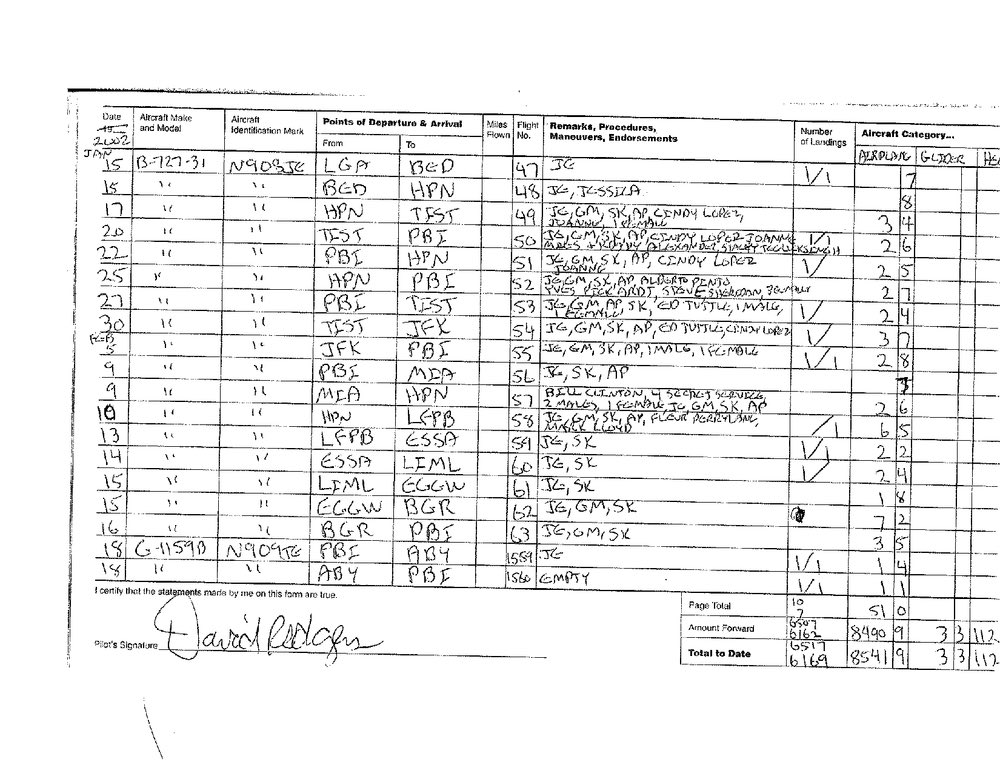 Date Aircraft Make and Model Aircraft Identification Mark Points of Departure & Arrival Miles Flown Flight No. Remarks, Procedures, Maneuvers, Endorsements Number of Landings Aircraft Category...
19 2002 From To AIRPLANE GLIDER
JAN
15 B-727-31 N908JE LGA BED 47 JE 1/1 7
15 " " BED HPN 48 JE, JESSICA 8
17 " " HPN TIST 49 JE, GM, SK, AP, CINDY LOPEZ, 3 4
JOANNE, 1 FEMALE
20 " " TIST PBI 50 JE, GM, SK, AP, CINDY LOPEZ JOANNE 1/1 2 6
ALEXANDER,
22 " " PBI HPN 51 JE, GM, SK, AP, CINDY LOPEZ 1/ 2 5
JOANNE
25 " " HPN PBI 52 JE, GM, SK, AP ALBERTO PINTO 2 7
27 " " PBI TIST 53 JE, GM, AP, SK, ED TUTTLE, 1 MALE, 1/ 2 4
1 FEMALE
30 " " TIST JFK 54 JE, GM, SK, AP, ED TUTTLE, CINDY LOPEZ 1/ 3 7
FEB
5 " " JFK PBI 55 JE, GM, SK, AP, 1 MALE, 1 FEMALE 1/1 2 8
9 " " PBI MIA 56 JE, SK, AP
9 " " MIA HPN 57 BILL CLINTON, 4 SECRET SERVICE, 2 6
2 MALES, 1 FEMALE JE, GM, SK, AP
10 " " HPN LFPB 58 JE, GM, SK, AP, FLEUR PERRY LANG, /1 6 5
MARK LLOYD
13 " " LFPB ESSA 59 JE, SK 1/1 2 2
14 " " ESSA LIML 60 JE, SK 1/ 2 4
15 " " LIML EGGW 61 JE, SK 1 8
15 " " EGGW BGR 62 JE, GM, SK 7 2
16 " " BGR PBI 63 JE, GM, SK 3 5
18 G-1159B N909JE PBI ABY 1559 JE 1/1 1 4
18 " " ABY PBI 1560 EMPTY 1/1 1 1
I certify that the statements made by me on this form are true.
Page Total 10 7 51 0
Amount Forward 6507 6162 8490 9 3 3 112
Pilot's Signature David Rodgers
Total to Date 6517 6169 8541 9 3 3 112